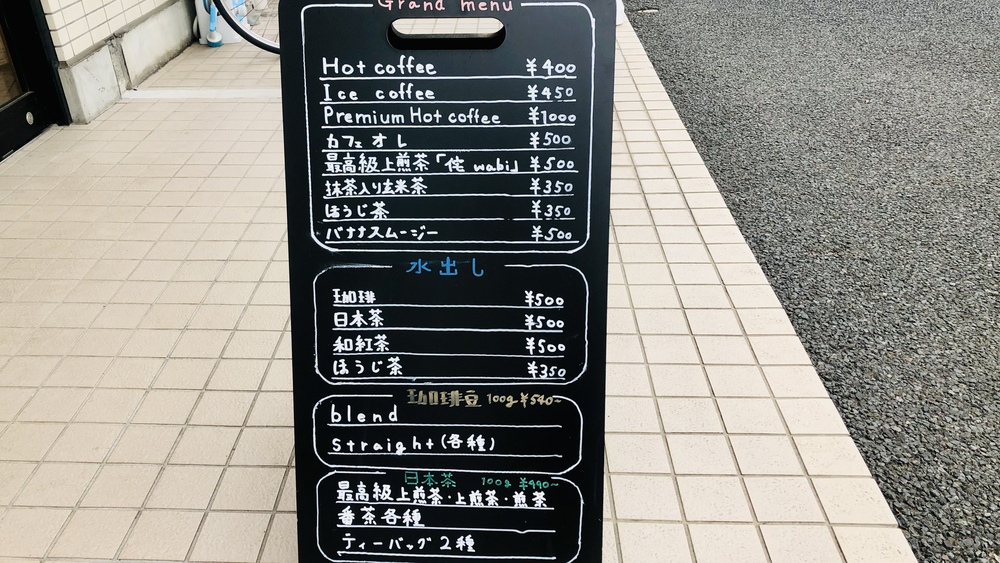 Grand menu
Hot coffee ¥400
Ice coffee ¥450
Premium Hot coffee ¥1000
カフェオレ ¥500
最高級上煎茶「侘 wabi」 ¥500
抹茶入り玄米茶 ¥350
ほうじ茶 ¥350
バナナスムージー ¥500
水出し
珈琲 ¥500
日本茶 ¥500
和紅茶 ¥500
ほうじ茶 ¥350
珈琲豆 100g ¥540~
blend
straight(各種)
日本茶 100g ¥490~
最高級上煎茶・上煎茶・煎茶
番茶各種
ティーバッグ2種